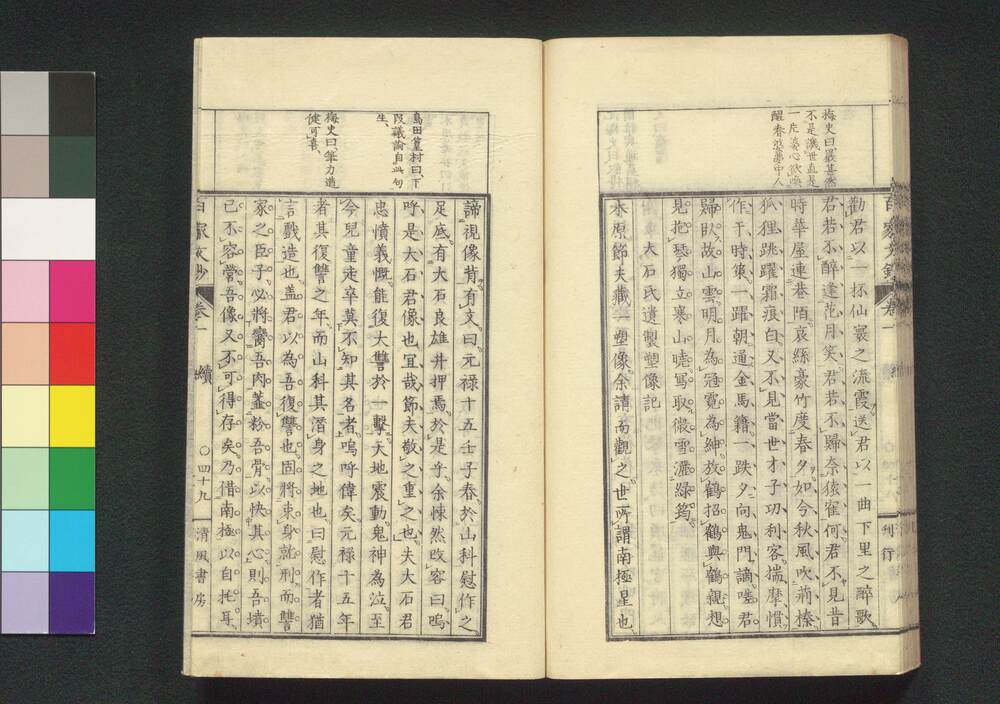 梅史曰、嚴甚、
不是譏世、直是
一片婆心、欲
醒春婆夢中人
勸君以一杯仙寰之流霞、送君以一曲下里之醉歌、
君若不醉逢花月笑、君若不歸奈猿寉何、君不見昔
時華屋連巷陌、哀絲豪竹度春夕、如今秋風吹荊榛、
狐狸跳躍霜痕白、又不見當世才子功利客、揣摩慣
作干時策、一躍朝通金馬籍、一跌夕向鬼門謫、嗟君
歸臥故山雲、明月為冠霓為紳、放鶴招鶴與鶴親、想
見抱琴獨立寒山曉、寫取微雪灑綠筠、
大石氏遺製塑像記
水原節夫藏一塑像、余請而觀之、世所謂南極星也、
島田篁村曰、下
段議論自此句
生、
梅史曰、筆力遒
健可喜、
諦視像背、有文曰、元祿十五壬子春、於山科慰作之
足底有大石良雄井押焉、於是乎余悚然改容曰、嗚
呼是大石君像也、宜哉節夫敬之重之也、夫大石君
忠憤義慨、能復大讐於一擊、天地震動、鬼神為泣、至
今兒童走卒莫不知其名者、嗚呼偉矣、元祿十五年
者其復讐之年、而山科其潛身之地也、曰慰作者猶
言戲造也、盖君以為吾復讐也、固將束身就刑、而讐
家之臣子、必將臠吾肉虀粉吾骨、以快其心、則吾墳
已不容營、吾像又不可得存矣、乃借南極以自托耳、
百家文鈔
卷一
續
〇四十九
清風書房
刊行